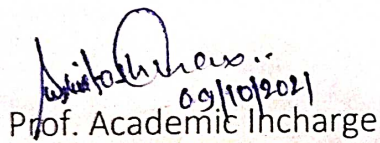 09/10/2021
Prof. Academic Incharge